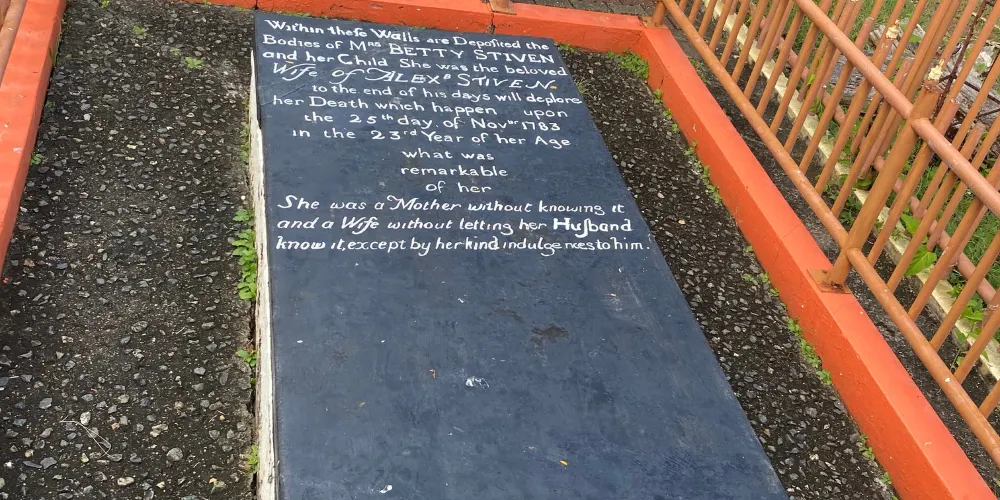 Within theſe Walls are Depoſited the
Bodies of Mrs BETTY STIVEN
and her Child She was the beloved
Wife of ALEXR STIVEN
to the end of his days will deplore
her Death which happen upon
the 25th day of Novbr 1783
in the 23rd Year of her Age
what was
remarkable
of her
She was a Mother without knowing it
and a Wife without letting her Huſband
know it, except by her kind indulgences to him.